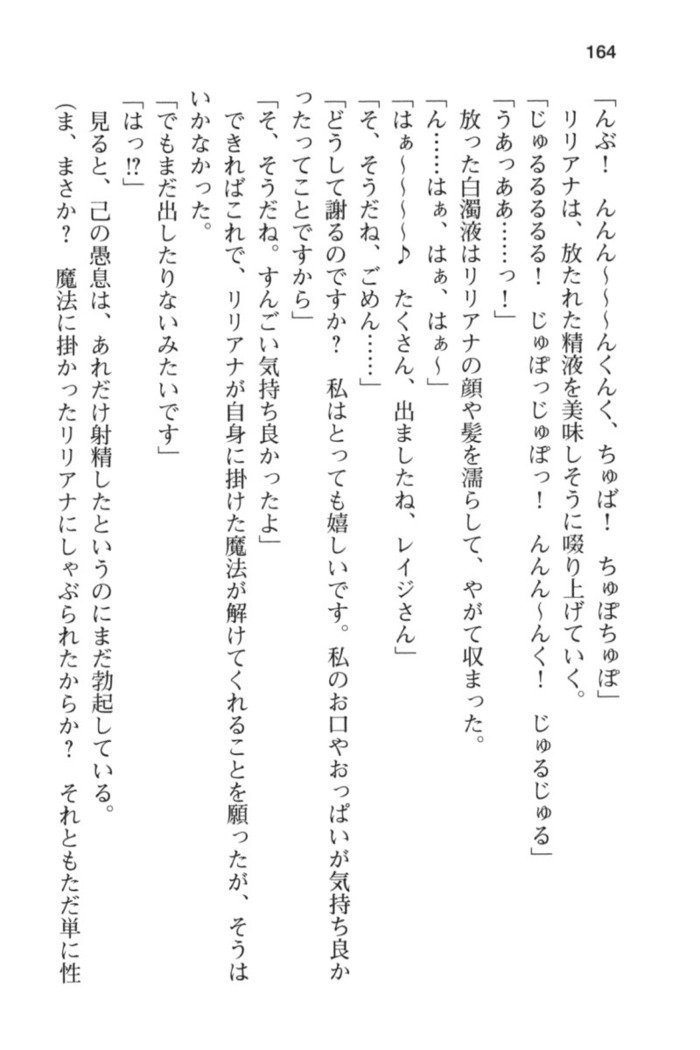 164
「んぶ！　んんん～～～んくんく、ちゅば！　ちゅぽちゅぽ」
　リリアナは、放たれた精液を美味しそうに啜り上げていく。
「じゅるるるるる！　じゅぽっじゅぽっ！　んんん～んく！　じゅるじゅる」
「うあっああ……っ！」
　放った白濁液はリリアナの顔や髪を濡らして、やがて収まった。
「ん……はぁ、はぁ、はぁ～」
「はぁ～～～～♪　たくさん、出ましたね、レイジさん」
「そ、そうだね、ごめん……」
「どうして謝るのですか？　私はとっても嬉しいです。私のお口やおっぱいが気持ち良か
ったってことですから」
「そ、そうだね。すんごい気持ち良かったよ」
　できればこれで、リリアナが自身に掛けた魔法が解けてくれることを願ったが、そうは
いかなかった。
「でもまだ出したりないみたいです」
「はっ!?」
　見ると、己の愚息は、あれだけ射精したというのにまだ勃起している。
（ま、まさか？　魔法に掛かったリリアナにしゃぶられたからか？　それともただ単に性